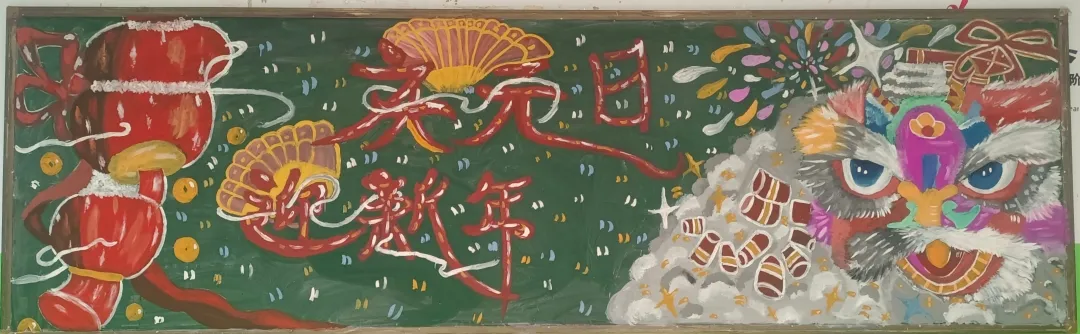 庆元日
迎新年